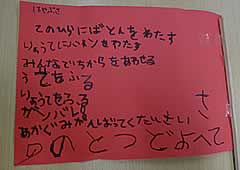 はやぶさ
てのひらにばとんをわたす
りょうてにバトンをわたす
みんなでちからをあわせる
うでをふる
りょうてをふる
がンバレ!
あかぐみがんばってくださいよ
さ
のとつどよへて